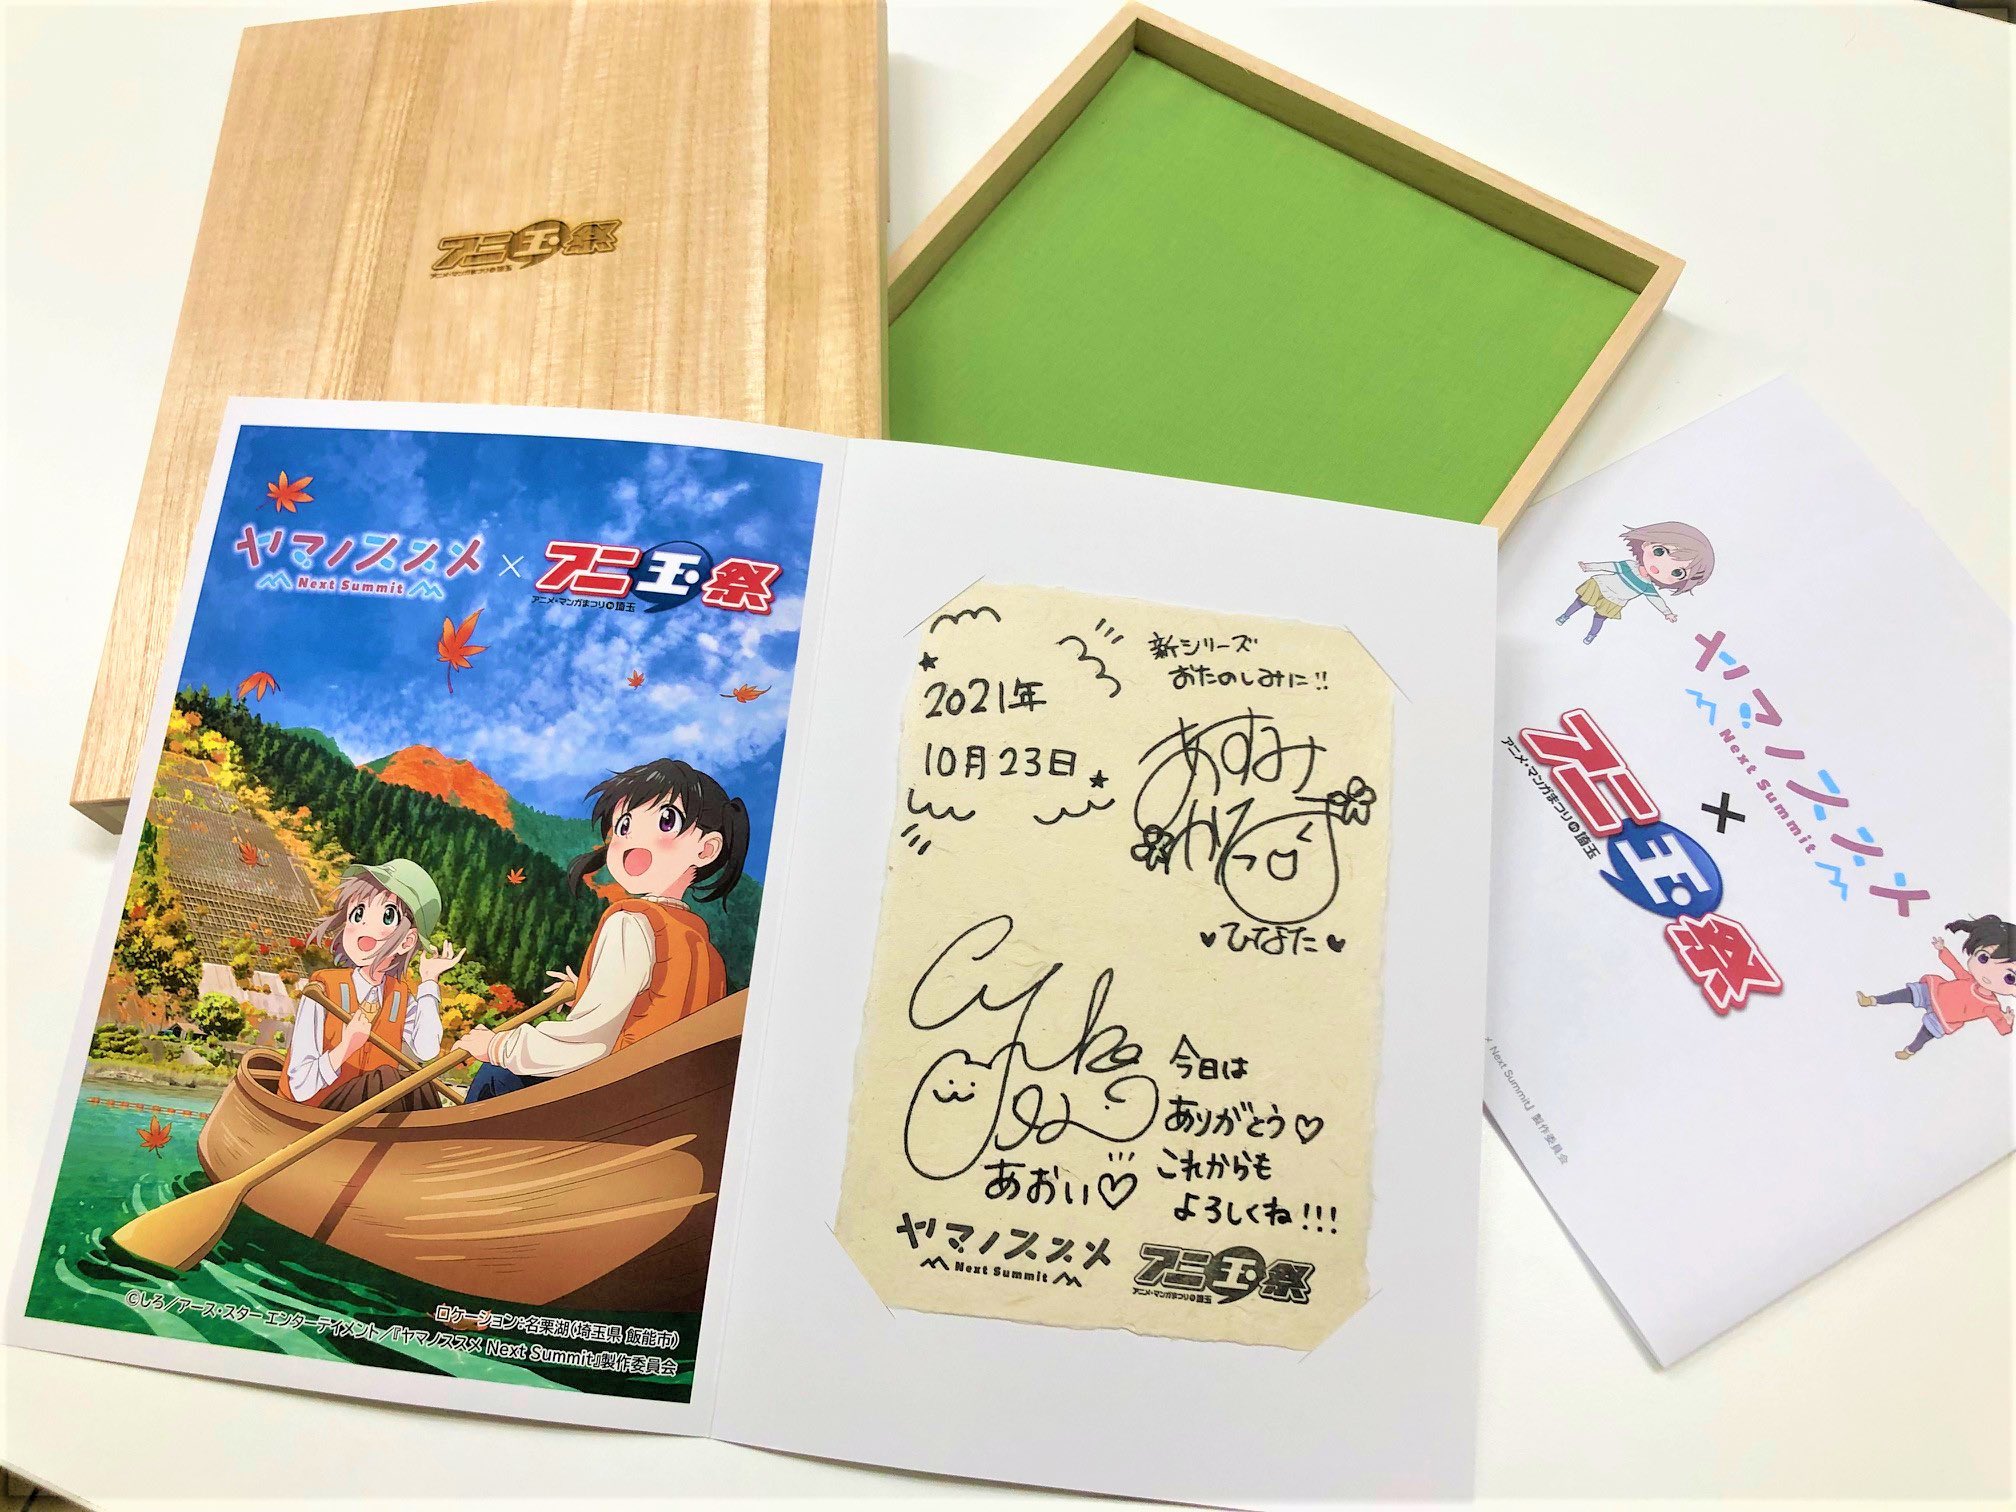 アニ玉祭
アニメ・マンガまつりin埼玉
ヤマノススメ
Next Summit
×
アニ玉祭
アニメ・マンガまつりin埼玉
ロケーション：名栗湖(埼玉県 飯能市)
©しろ／アース・スター エンターテイメント／『ヤマノススメ Next Summit』製作委員会
2021年
10月23日
新シリーズ
おたのしみに!!
あすみ
かな
♥ひなた♥
あおい♡
今日は
ありがとう♡
これからも
よろしくね!!!
ヤマノススメ
Next Summit
アニ玉祭
アニメ・マンガまつりin埼玉
ヤマノススメ
Next Summit
+
アニ玉祭
アニメ・マンガまつりin埼玉
Next Summit』製作委員会